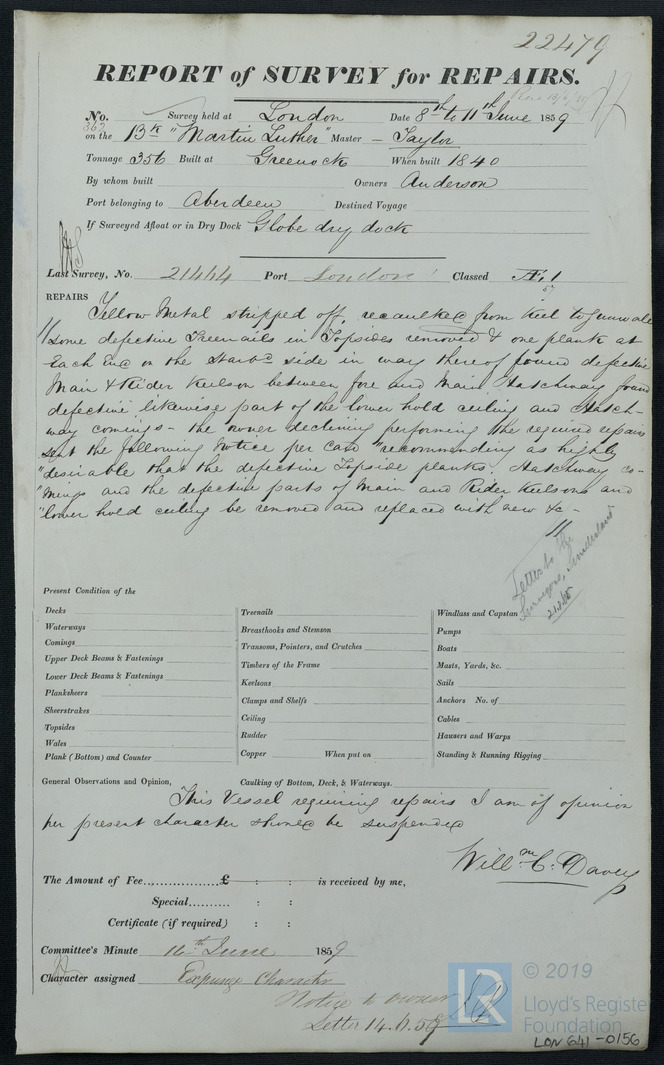 22479
REPORT of SURVEY for REPAIRS.
No. Survey held at London Date 8th to 11th June 1859
363
on the Bk "Martin Luther" Master - Taylor
Tonnage 356 Built at Greenock When built 1840
By whom built Owners Anderson
Port belonging to Aberdeen Destined Voyage
If Surveyed Afloat or in Dry Dock Globe dry dock
Last Survey, No. 21444 Port London Classed Æ.1
57
REPAIRS Yellow Metal stripped off, recaulked from keel to gunwale
Some defective Treenails in Topsides removed & one plank at
Each End on the Starbd side in way thereof found defective
Main & Rider Keelson between fore and main Hatchway found
defective likewise part of the lower hold ceiling and Hatch-
way comings - the owner declining performing the required repairs
sent the following Notice per case "recommending as highly
"desirable that the defective Topside planks, Hatchway co-
"mings and the defective parts of Main and Rider Keelsons and
"lower hold ceiling be removed and replaced with new &c -
Letter to the
Surveyors, Sunderland
Present Condition of the
Decks
Waterways
Comings
Upper Deck Beams & Fastenings
Lower Deck Beams & Fastenings
Planksheers
Sheerstrakes
Topsides
Wales
Plank (Bottom) and Counter
Treenails
Breasthooks and Stemson
Transoms, Pointers, and Crutches
Timbers of the Frame
Keelsons
Clamps and Shelfs
Ceiling
Rudder
Copper When put on
Windlass and Capstan
Pumps
Boats
Masts, Yards, &c.
Sails
Anchors No. of
Cables
Hawsers and Warps
Standing & Running Rigging
General Observations and Opinion, Caulking of Bottom, Deck, & Waterways.
This Vessel requiring repairs I am of opinion
her present character should be suspended
Willm C. Davey
The Amount of Fee................£ : : is received by me,
Special.......... : :
Certificate (if required) : :
Committee's Minute 14th June 1859
Character assigned Expunge Character
Notice to owner
Letter 14.6.59
LR © 2019
Lloyd's Register
Foundation
LON 641-0156